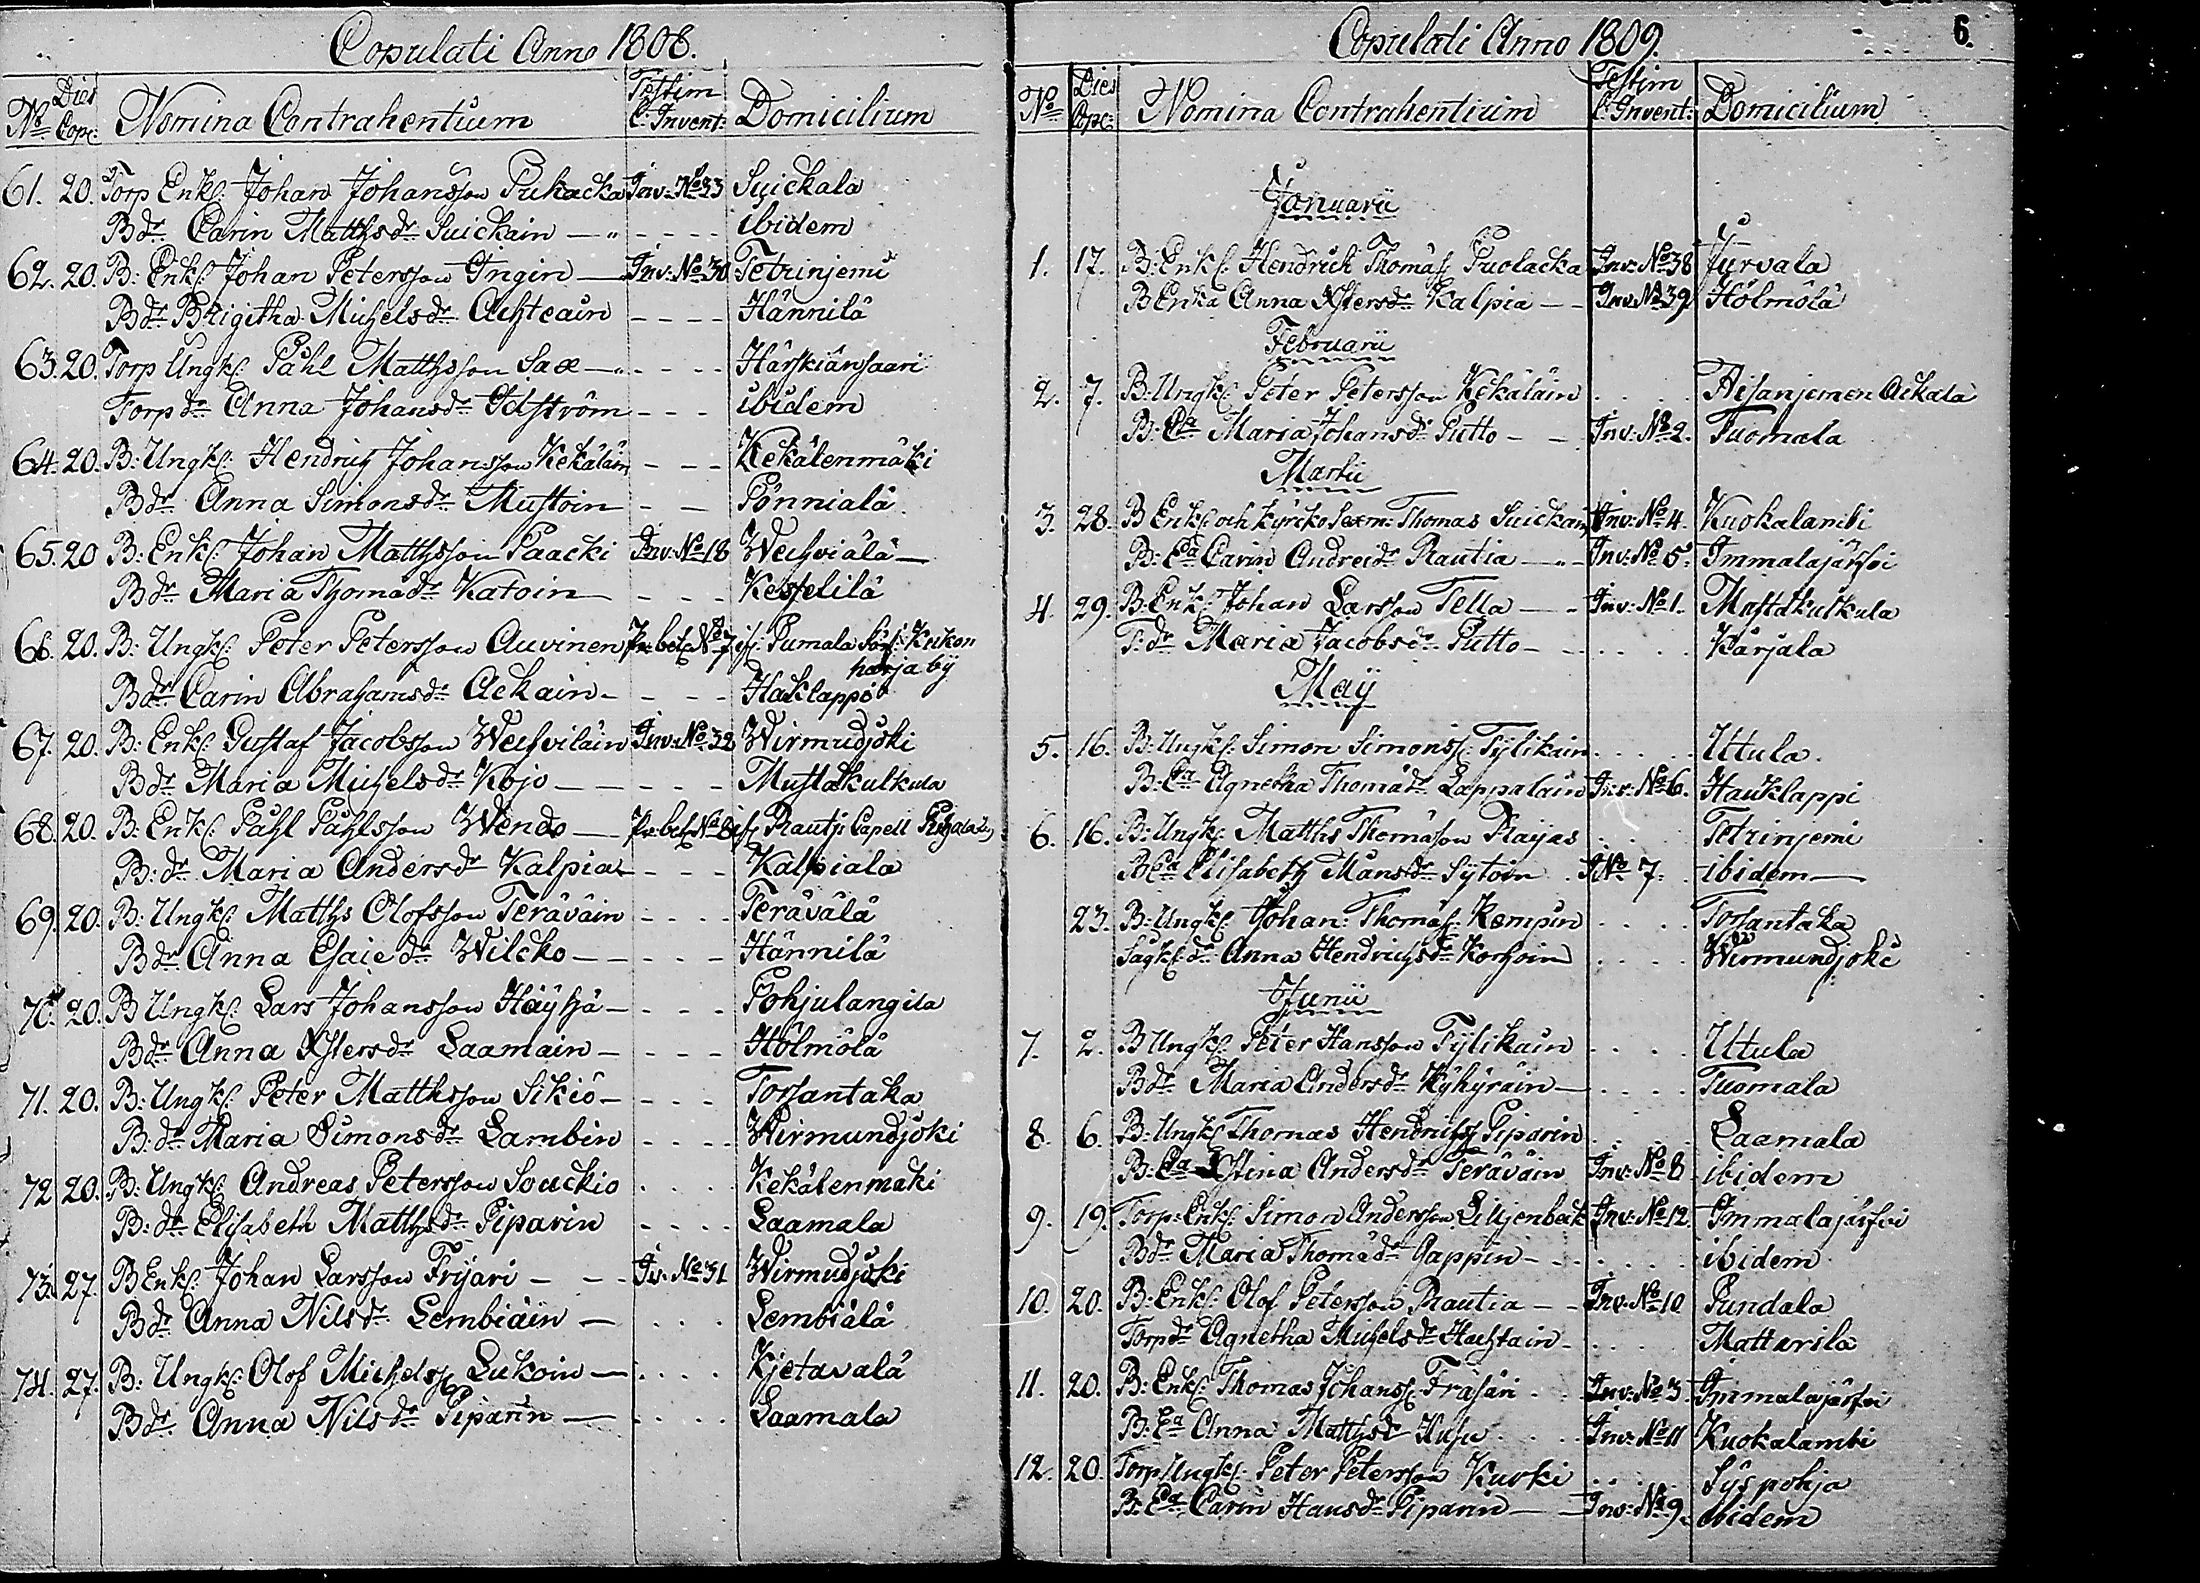 Copulati Anno 1808.
No Dies Copc: Nomina Contrahentium Testim C: Invent: Domicilium
61. 20. Torp Enkl: Johan Johansson Puhacka Inv: No 33 Suickala
Bdr Carin Matthsdr Suickain - - - - ibidem
62. 20. B: Enkl: Johan Petersson Ingin Inv: No 30 Tetrinjemi
Bdr Brigitha Michelsdr Achtcain - - - - Hännilä
63. 20. Torp Ungkl: Påhl Matthsson Sax - - - - Härskiänsaari
Torp dr Anna Johansdr Edström - - - ibidem
64. 20. B: Ungkl: Hendrich Johansson Kekäläin - - - Kekälenmäki
Bdr Anna Simonsdr Mustoin - - Pönniälä
65. 20 B: Enkl: Johan Matthsson Paacki Inv: No 18 Wechviälä
Bdr Maria Thomadr Katoin - - - Kesselilä
66. 20. B: Ungkl: Peter Petersson Auvinen Pr: bet No 7 ifr: Pumala Sn: Kukon
harja bÿ
Bdr Carin Abrahamsdr Ackain - - - - Haklappi
67. 20. B: Enkl: Gustaf Jacobsson Wechviläin Inv: No 32 Wirmudjoki
Bdr Maria Michelsdr Kojo - - - - Mustakulkula
68. 20. B: Enkl: Påhl Påhlsson Wendo Pr: bet No 8 ifr: Rautj: Capell
B: dr Maria Andersdr Kalpia - - - Kalpiala
69. 20. B: Ungkl: Matths Olofsson Teräväin - - - - Terävälä
Bdr Anna Esaiedr Wilcko - - - - - Hännilä
70. 20. B Ungkl: Lars Johansson Häÿhä - - - - Pohjulangila
Bdr Anna Xstersdr Laamain - - - - Hölmölä
71. 20. B: Ungkl: Peter Matthsson Sikiö - - - - Torsantaka
B: dr Maria Simonsdr Lambin - - - - Wirmundjoki
72 20. B: Ungkl: Andreas Petersson Souckio . . . . Kekälenmäki
B: dr Elisabeth Matthsdr Piparin - - - - Laamala
73. 27. B Enkl: Johan Larsson Frijari - - - Iv: No 31 Wirmudjoki
Bdr Anna Nilsdr Lembiäin - . . . . Lembiälä
74. 27. B: Ungkl: Olof Michelss: Lukoin . . . . Kjetavalä
Bdr Anna Nilsdr Piparin . . . . Laamala
Copulati Anno 1809.
6.
No Dies Copc: Nomina Contrahentium Testim C: Invent: Domicilium
Januarii
1. 17. B: Enkl: Hendrich Thomass: Puolacka Inv: No 38 Jurvala
B Enka Anna Xstersdr Kalpia - - Inv: No 39 Hölmölä
Februarii
2. 7. B: Ungkl: Peter Petersson Kekäläin . . . . Ackala
B: Ea Maria Johansdr Putto - - Inv: No 2. Tuomala
Martii
3. 28. B Enkl: och Kÿrcko Sexm: Thomas Suickain Inv: No 4. Kuokalambi
B: Ea Carin Andreidr Rautia Inv: No 5. Immalajärfvi
4. 29. B: Enkl: Johan Larsson Tella Inv: No 1. Mustakulkula
T: dr Maria Jacobsdr Putto - . . . . . Kärjala
Maÿ
5. 16. B: Ungkl: Simon Simonss: Tÿlikain . . . . . Uttula
B: Ea Agnetha Thomädr Lappalain Inv: No 6. Hauklappi
6. 16. B: Ungkl: Matths Thomasson Raijas . . . Tetrinjemi
B Ea Elisabeth Månsdr Sÿtoin . I No 7. ibidem
23. B: Ungkl: Johan: Thomass: Kempin . . . . Torsantaka
dr Anna Hendrichsdr Korhoin . . . . Wirmundjoki
Junii
7. 2. B Ungkl: Peter Hansson Tÿlikain . . . . Uttula
Bdr Maria Andersdr Kÿhÿräin . . . . Tuomala
8. 6. B: Ungkl: Thomas Hendrichss: Piparin . . . . Laamala
B: Ea Xstina Andersdr Teräväin Inv: No 8 ibidem
9. 19. Torp: Enkl: Simon Andersson Liljenbäck Inv: No 12. Immalajärfvi
Bdr Maria Thomädr Pappin - . . . . . ibidem
10. 20. B: Enkl: Olof Petersson Rautia - - Inv: No 10 Pundala
Torp dr Agnetha Michelsdr Hachtain - . . . . Matturila
11. 20. B: Enkl: Thomas Johanss: Fräsäri . . Inv: No 3 Immalajärfvi
B: Ea Anna Matthsdr Huhu . . . . Inv: No 11 Kuokalambi
12. 20. Torp Ungkl: Peter Petersson Kurki . . . . Sÿspohja
B: Ea Carin Hansdr Piparin Inv: No 9. ibidem